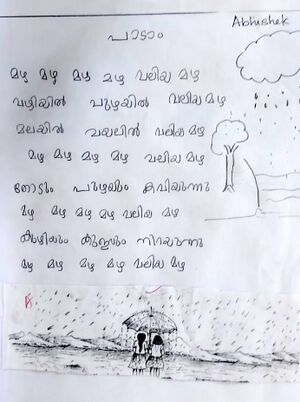 Abhishek
പാടാം
മഴ മഴ മഴ മഴ വലിയ മഴ
വഴിയിൽ പുഴയിൽ വലിയ മഴ
മലയിൽ വയലിൽ വലിയ മഴ
മഴ മഴ മഴ മഴ വലിയ മഴ
തോടും പുഴയും കവിയുന്നു
മഴ മഴ മഴ മഴ വലിയ മഴ
കുഴിയും കുളവും നിറയുന്നു
മഴ മഴ മഴ മഴ വലിയ മഴ